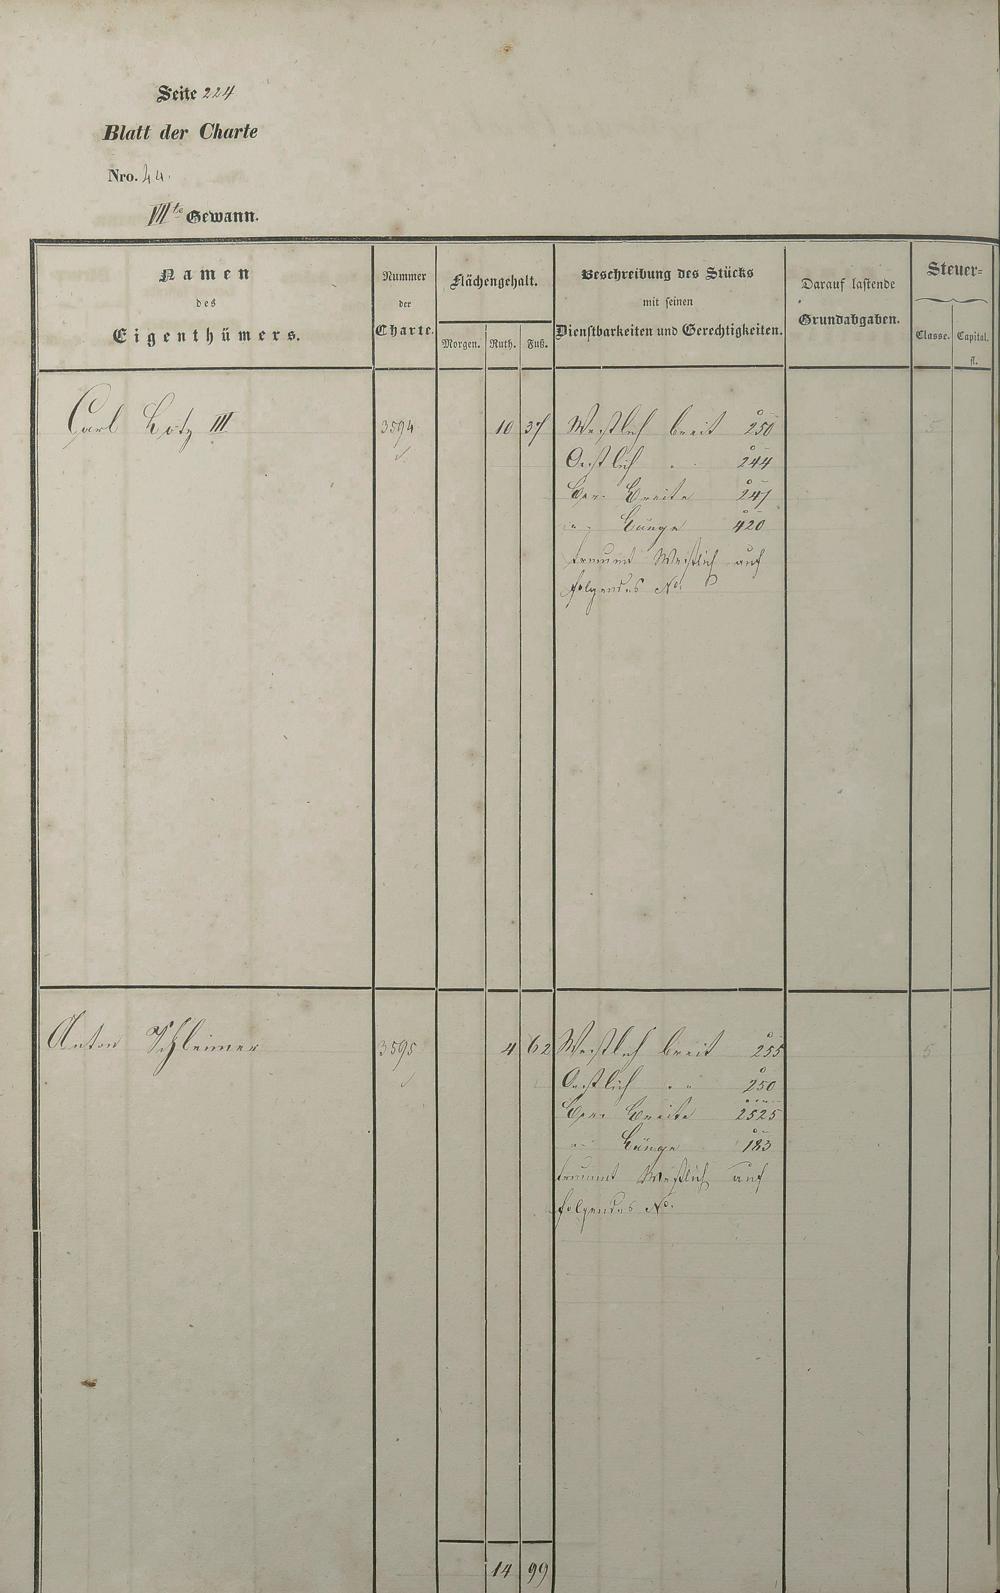 Seite 224
Blatt der Charte
Nro. 44.
VIIte Gewann.
Namen des Eigenthümers.
Nummer der Charte.
Flächengehalt.
Morgen. Ruth. Fuß.
Beschreibung des Stücks mit seinen Dienstbarkeiten und Gerechtigkeiten.
Darauf lastende Grundabgaben.
Steuer=
Classe. Capital. fl.
Carl Lotz III 3594 10 37 Westlich breit 250 5
Oestlich " 244
Geo. Breite 247
" Länge 420
trennt Westlich auf
folgendes No.
Anton Schleimer 3595 4 62 Westlich breit 255 5
Oestlich " " 250
Geo. Breite 2525
" Länge 183
trennt Westlich auf
folgendes No.
14 99